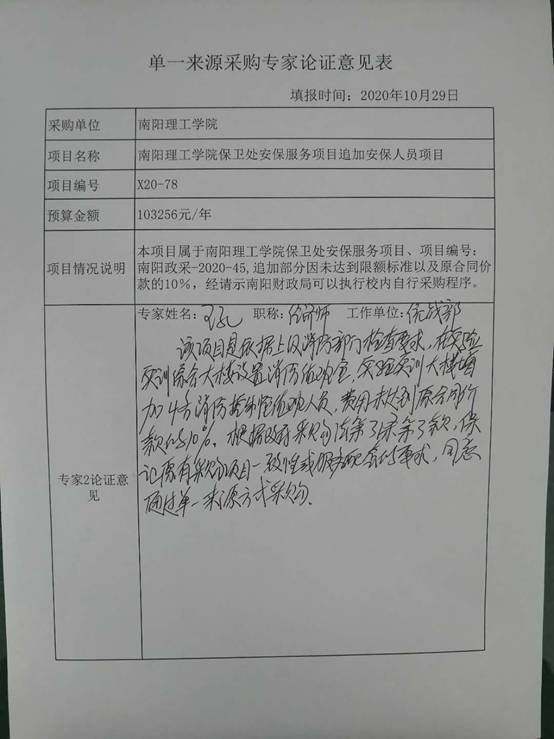 单一来源采购专家论证意见表
填报时间：2020年10月29日
采购单位 南阳理工学院
项目名称 南阳理工学院保卫处安保服务项目追加安保人员项目
项目编号 X20-78
预算金额 103256元/年
项目情况说明
本项目属于南阳理工学院保卫处安保服务项目、项目编号：
南阳政采-2020-45,追加部分因未达到限额标准以及原合同价
款的10%，经请示南阳财政局可以执行校内自行采购程序。
专家2论证意
见
专家姓名： 职称：经济师 工作单位：统战部
该项目是依据上级消防部门检查要求，在实验
实训综合大楼设置消防值班室，实验实训大楼增
加4名消防控制室值班人员，费用未达到原合同价
款的10%。根据政府采购法第31条第3款，保
证原有采购项目一致性或服务配套的要求，同意
通过单一来源方式采购。